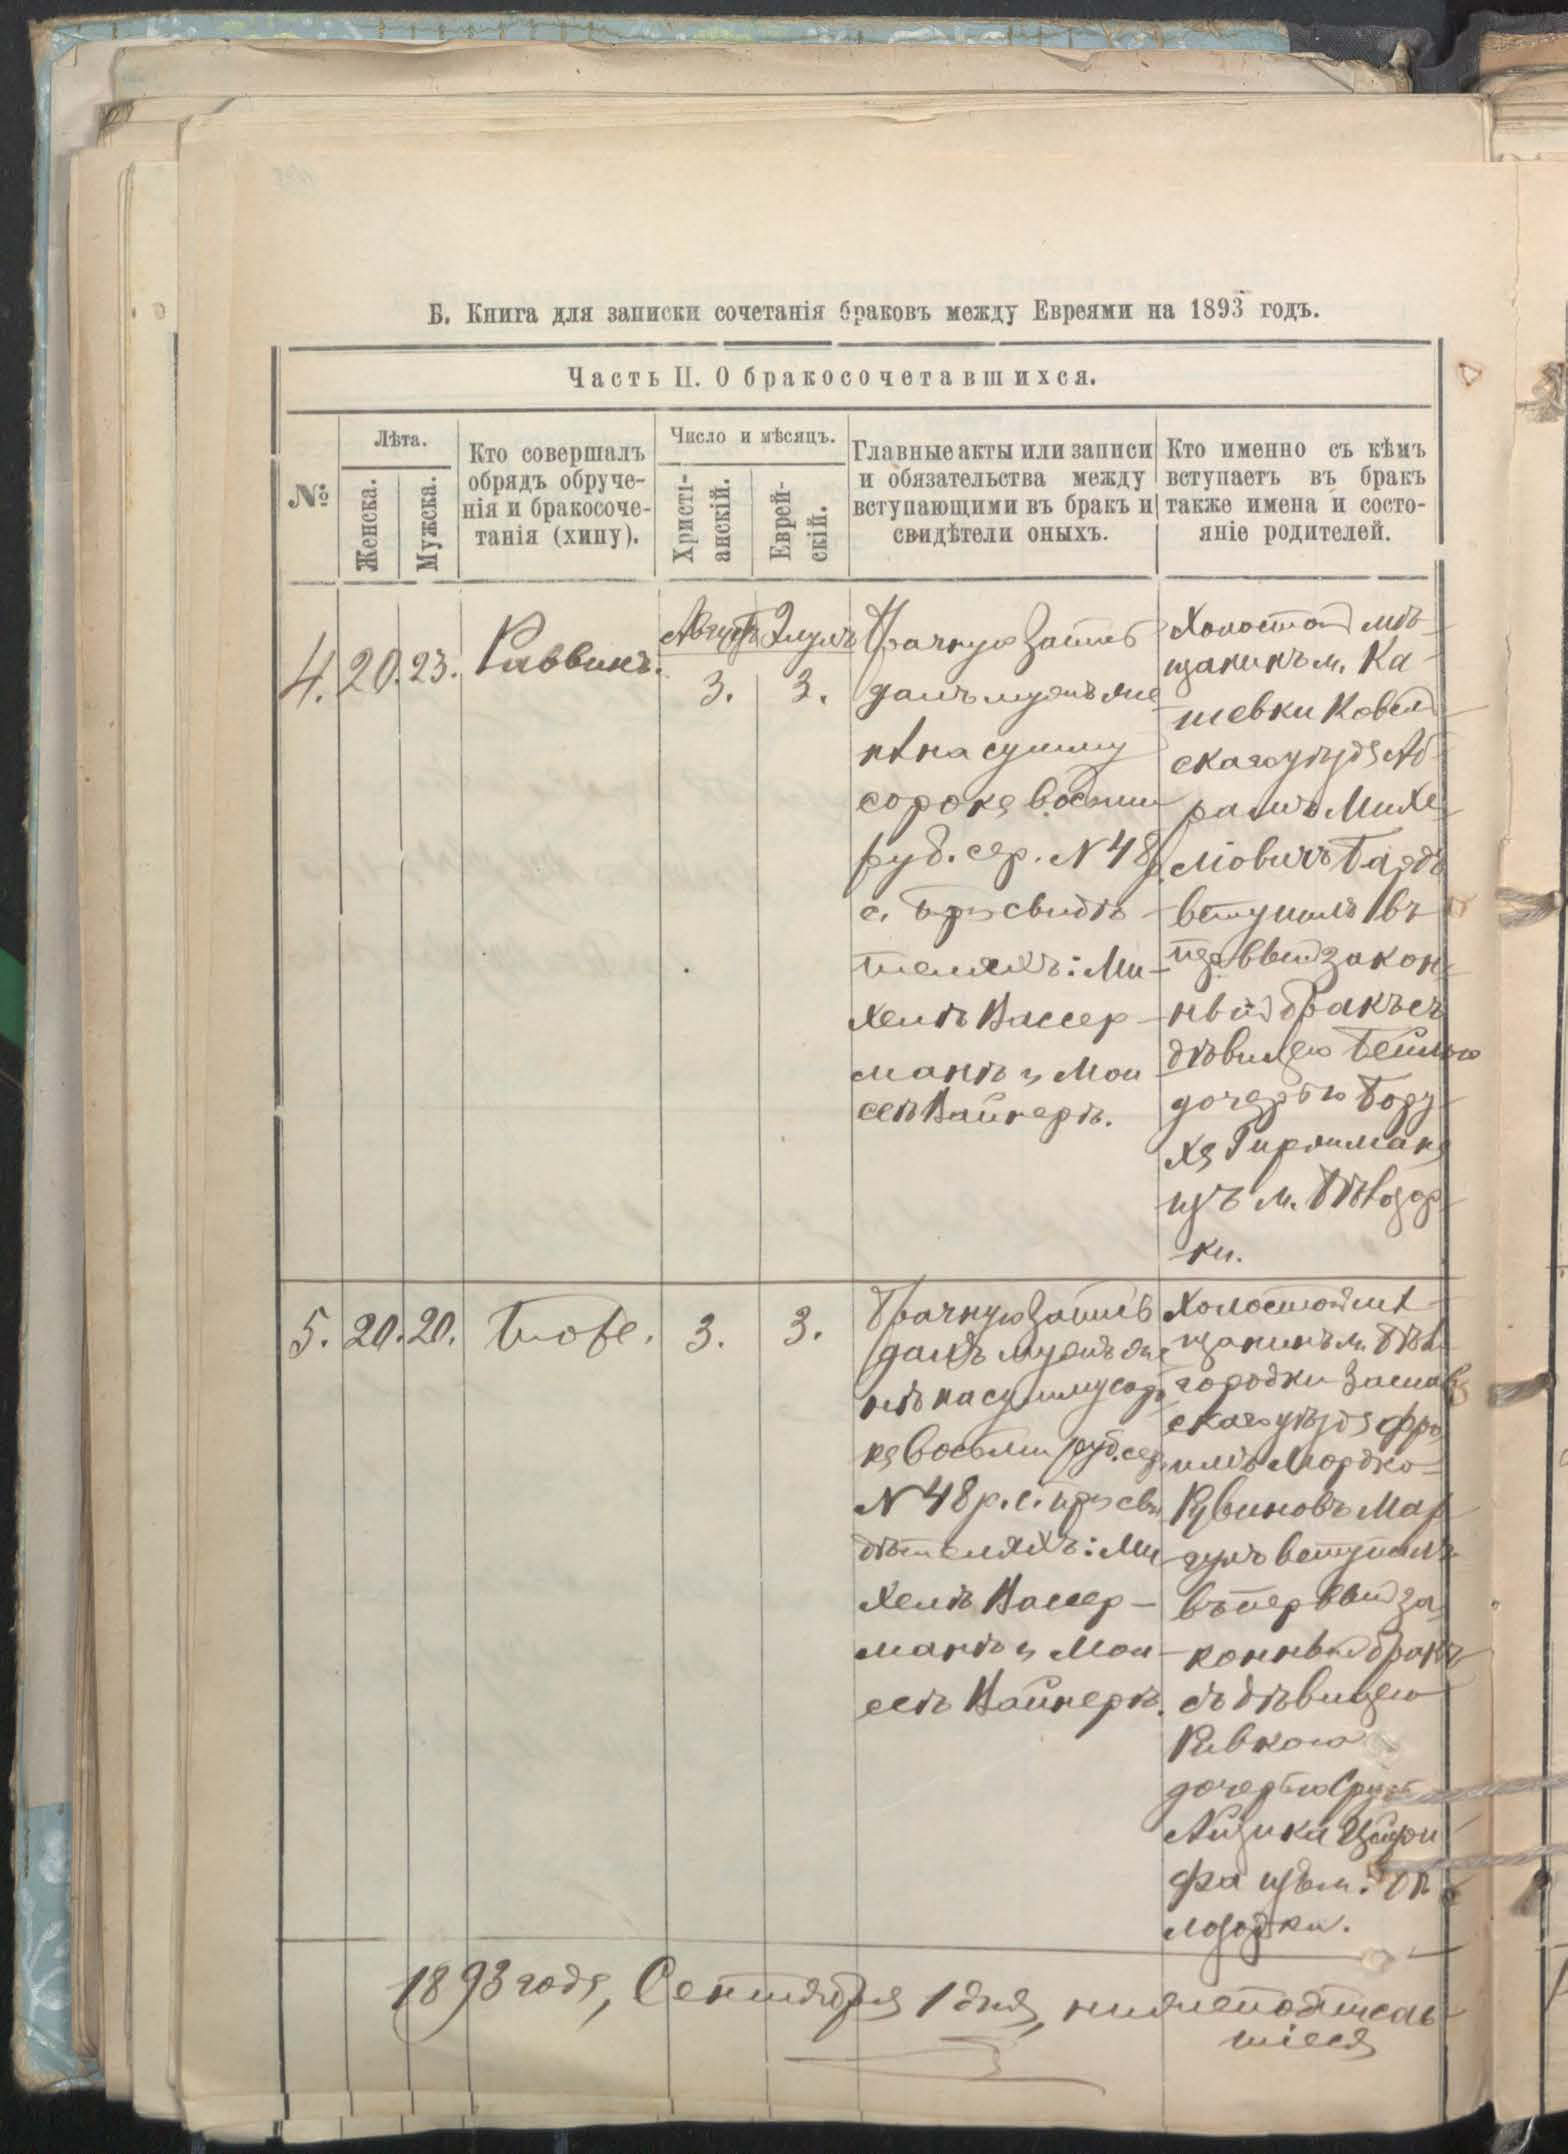 Б. Книга для записки сочетанія браковъ между Евреями на 1893 годъ.
Часть II. О бракосочетавшихся.
№
Лѣта.
Женска.
Мужска.
Кто совершалъ
обрядъ обруче-
нія и бракосоче-
танія (хипу).
Число и мѣсяцъ.
Христі-
анскій.
Еврей-
скій.
Главные акты или записи
и обязательства между
вступающими въ бракъ и
свидѣтели оныхъ.
Кто именно съ кѣмъ
вступаетъ въ бракъ
также имена и состо-
яніе родителей.
4.
20.
23.
Раввинъ.
Августъ
3.
Элулъ
3.
Брачную запись
далъ мужъ же
нѣ на сумму
сорока восьми
руб. сер. N 48 р.
с. при свидѣ
теляхъ: Ми-
хелѣ Вассер-
манѣ и Мои
сеѣ Вайнерѣ.
Холостой мѣ-
щанинъ м. Ка-
шевки Ковель
скаго уѣзда Аб-
рамъ Михе
ліовичъ
вступилъ въ
первый закон-
ный бракъ съ
дѣвицею Бейлею
дочерью Бору-
ха
изъ м. Бѣлогор
ки.
5.
20.
20.
Тоже.
3.
3.
Брачную запись
далъ мужъ же
нѣ на сумму соро
ка восьми руб. сер.
N 48 р. с. при сви
дѣтеляхъ: Ми
хелѣ Вассер-
манѣ и Мои
сеѣ Вайнерѣ.
Холостой мѣ-
щанинъ м. Бѣл
городки Заслав
скаго уѣзда Фро
имъ Мордко-
Рувиновъ Мар
гулъ вступилъ
въ первый за-
конный бракъ
съ дѣвицею
Ривкою
дочерью
Айзика
изъ м. Бѣ
лгородки.
1893 года, Сентября 1 дня, нижеподписав
шіеся